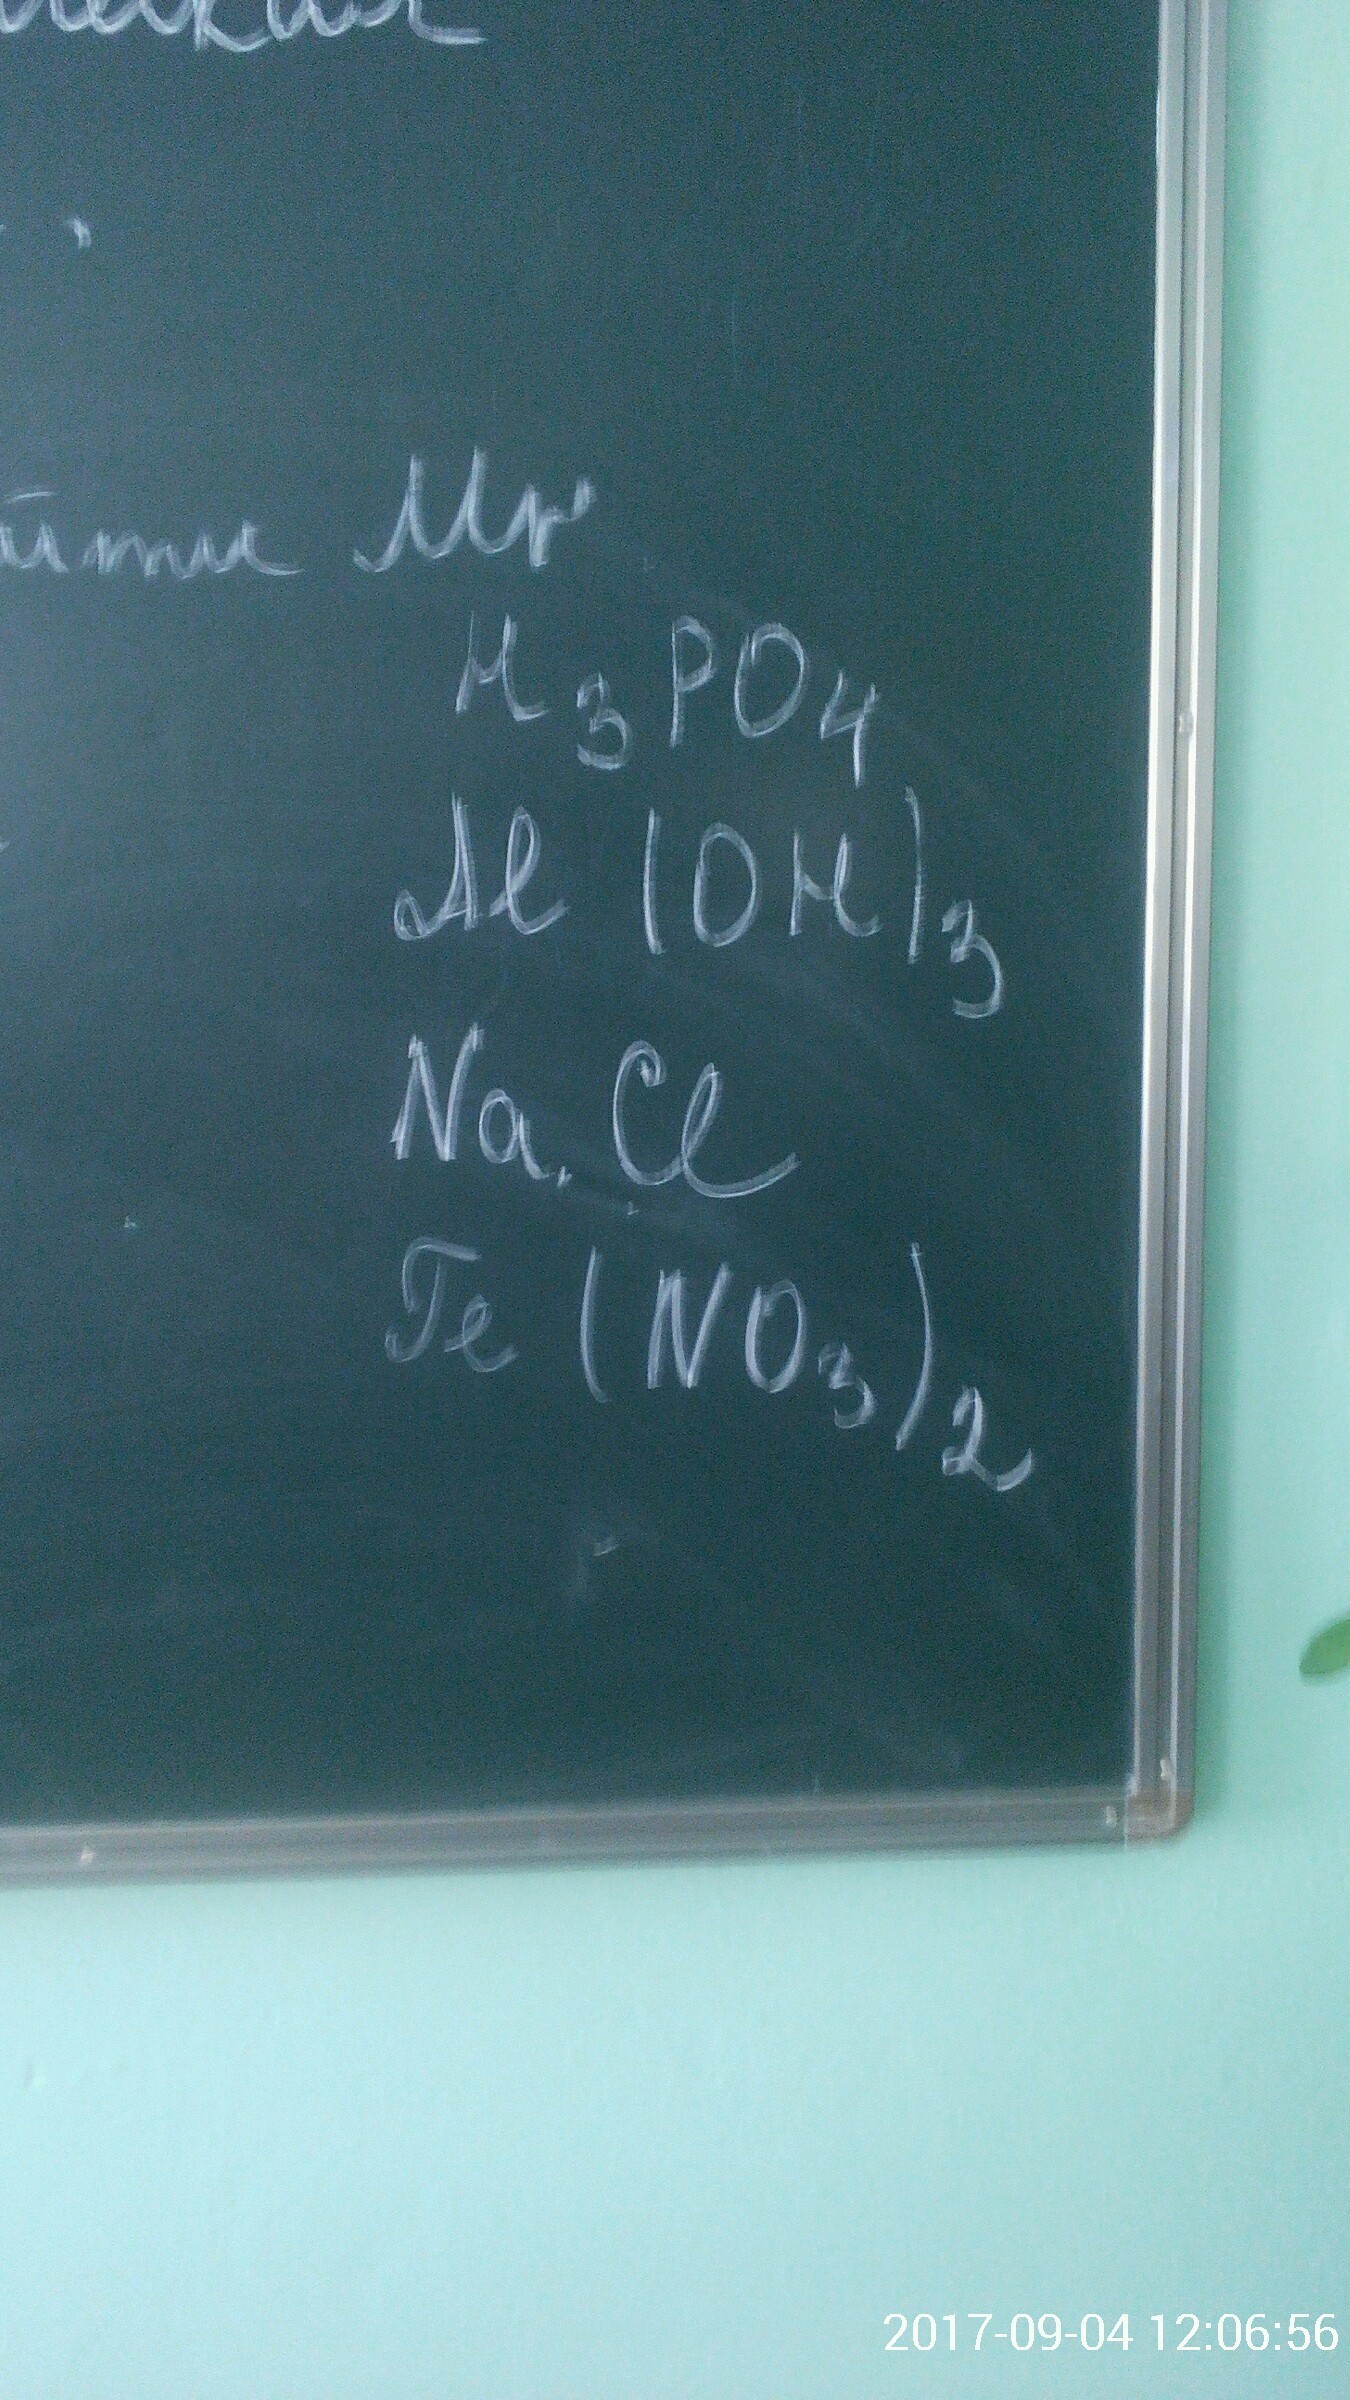 Mr
H3PO4
Al (OH)3
Na Cl
Fe (NO3)2
2017-09-04 12:06:56